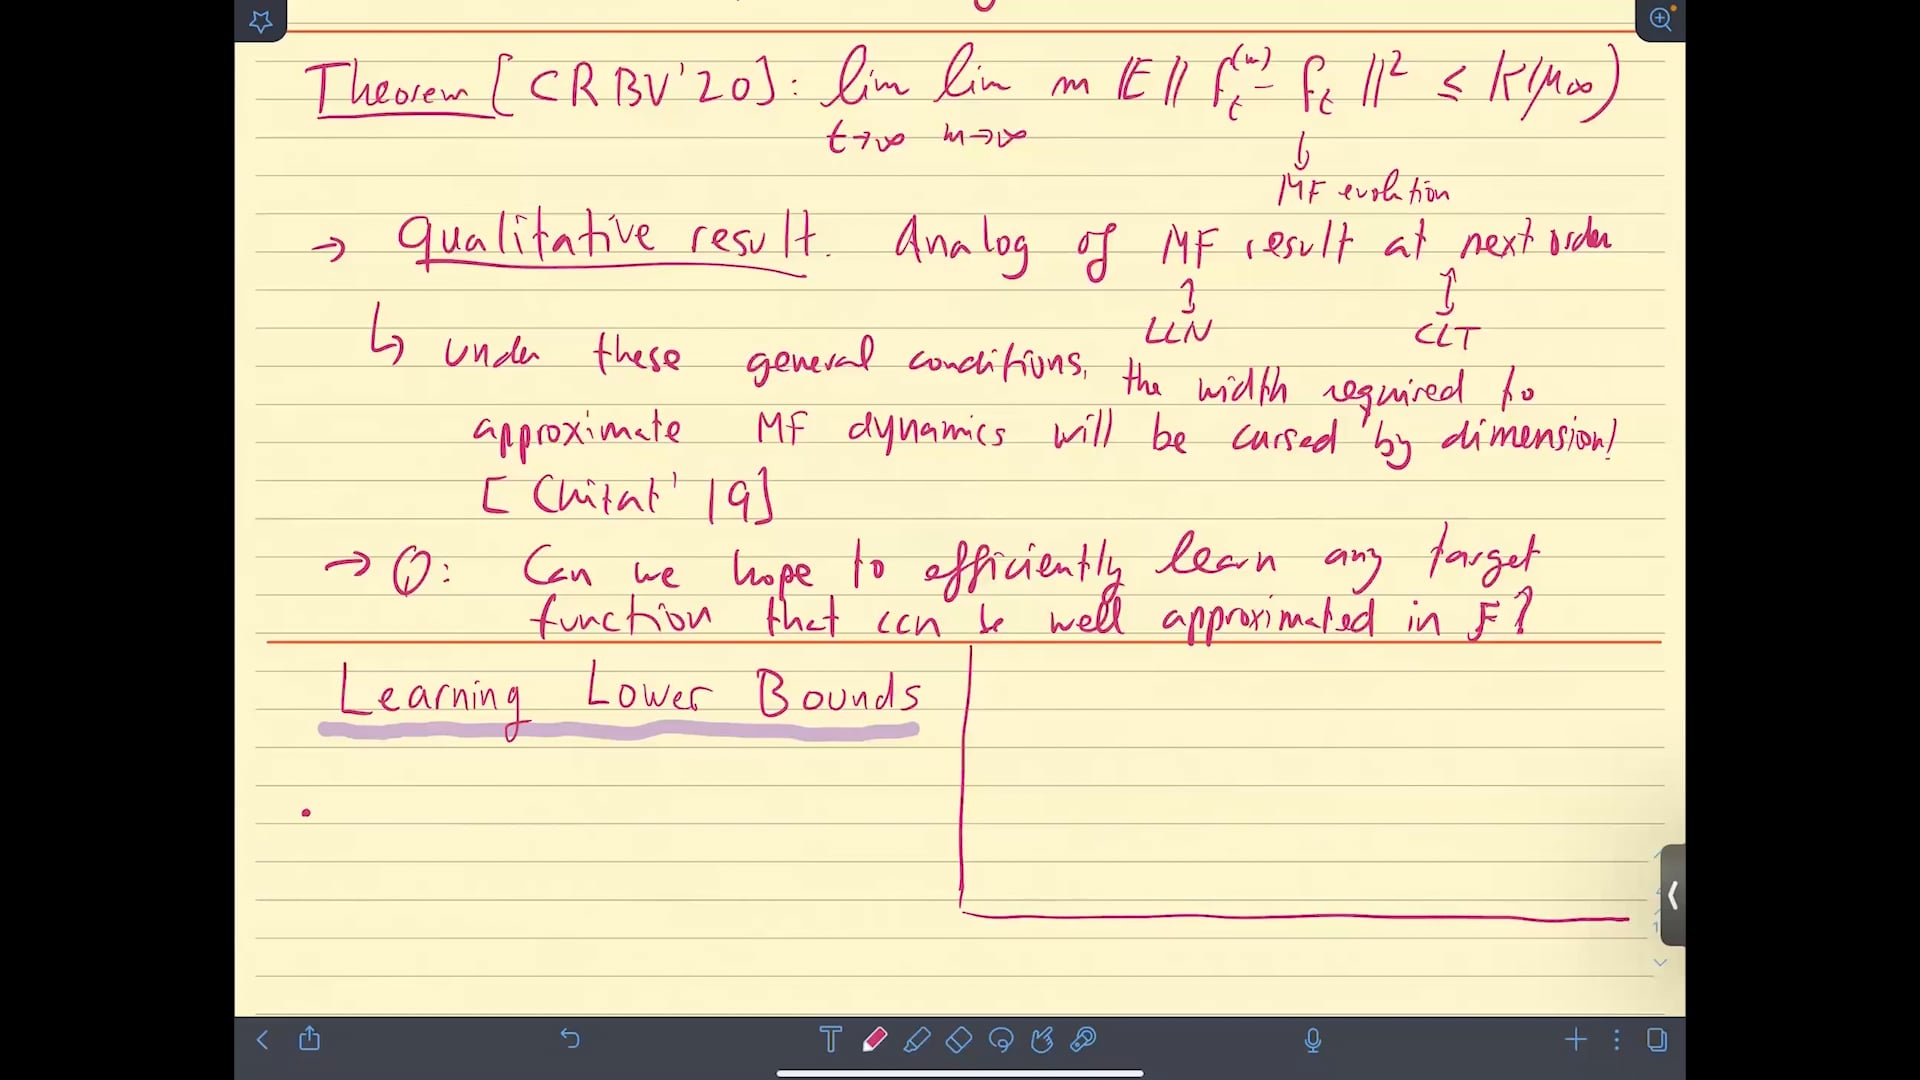 Theorem [CRBV'20]: lim lim m E || f_t^(m) - f_t ||² ≤ K(μ∞)
t→∞ m→∞
↓
MF evolution
→ Qualitative result. Analog of MF result at next order
↕ ↕
LLN CLT
↳ under these general conditions, the width required to
approximate MF dynamics will be cursed by dimension!
[Chitat'19]
→ Q: Can we hope to efficiently learn any target
function that can be well approximated in F?
Learning Lower Bounds
•